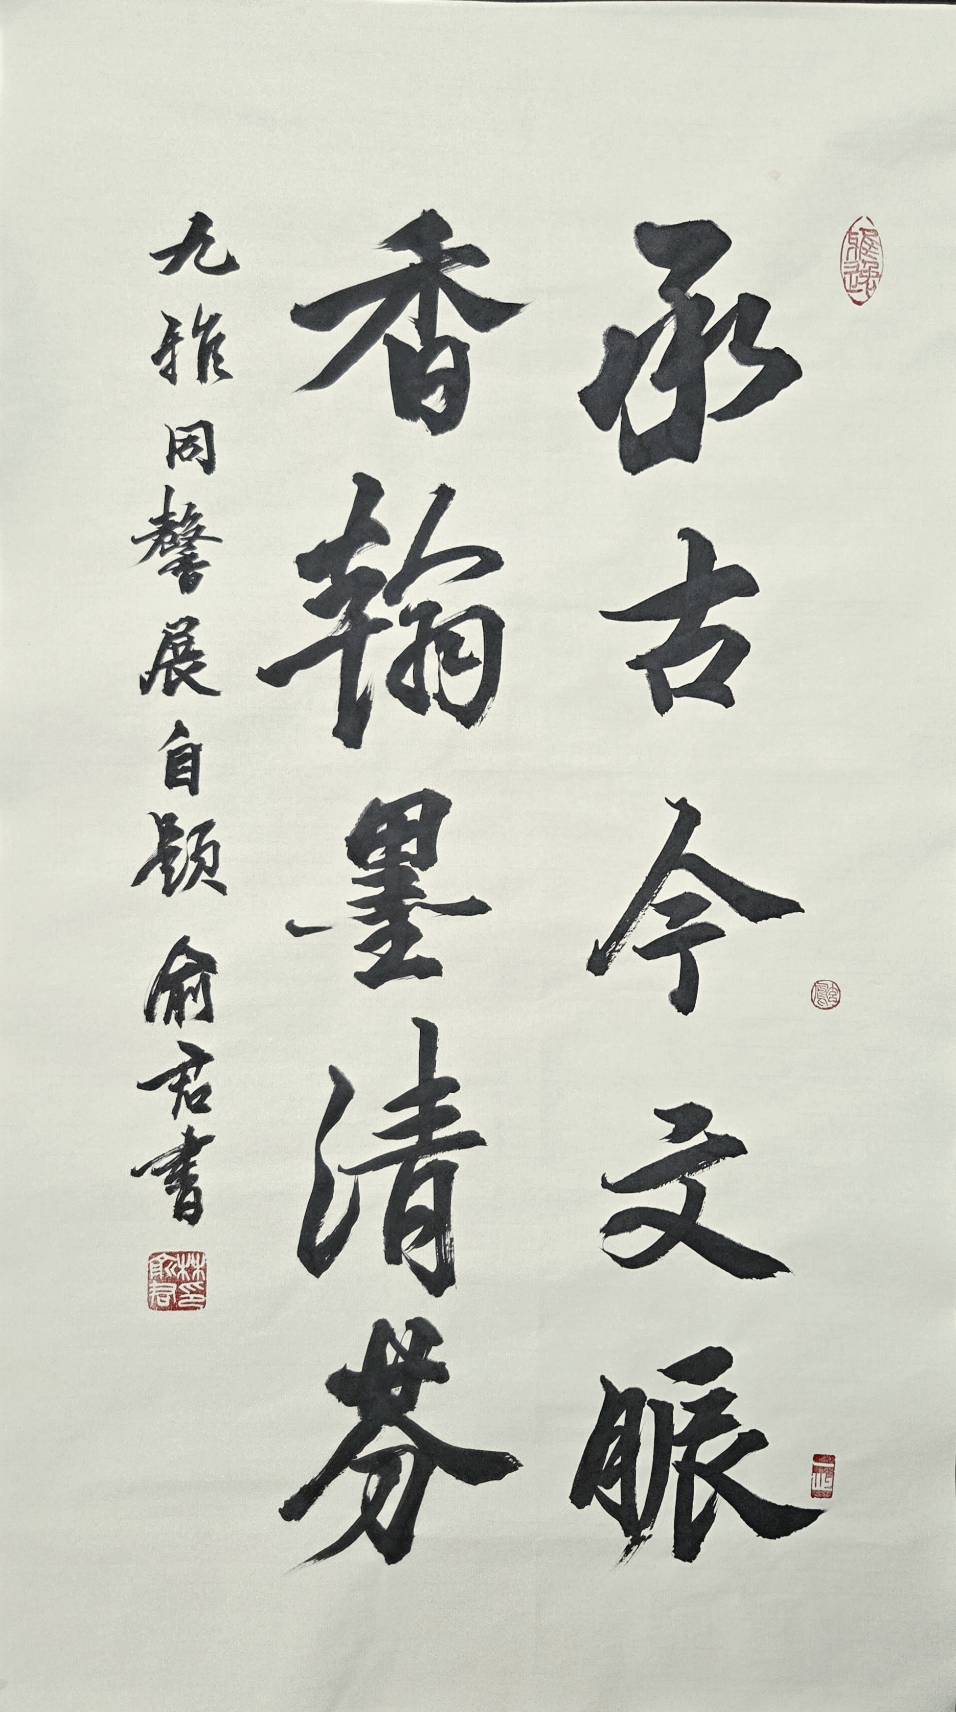 承古今文脈
香翰墨清芬
九雅同馨展自題 俞君書